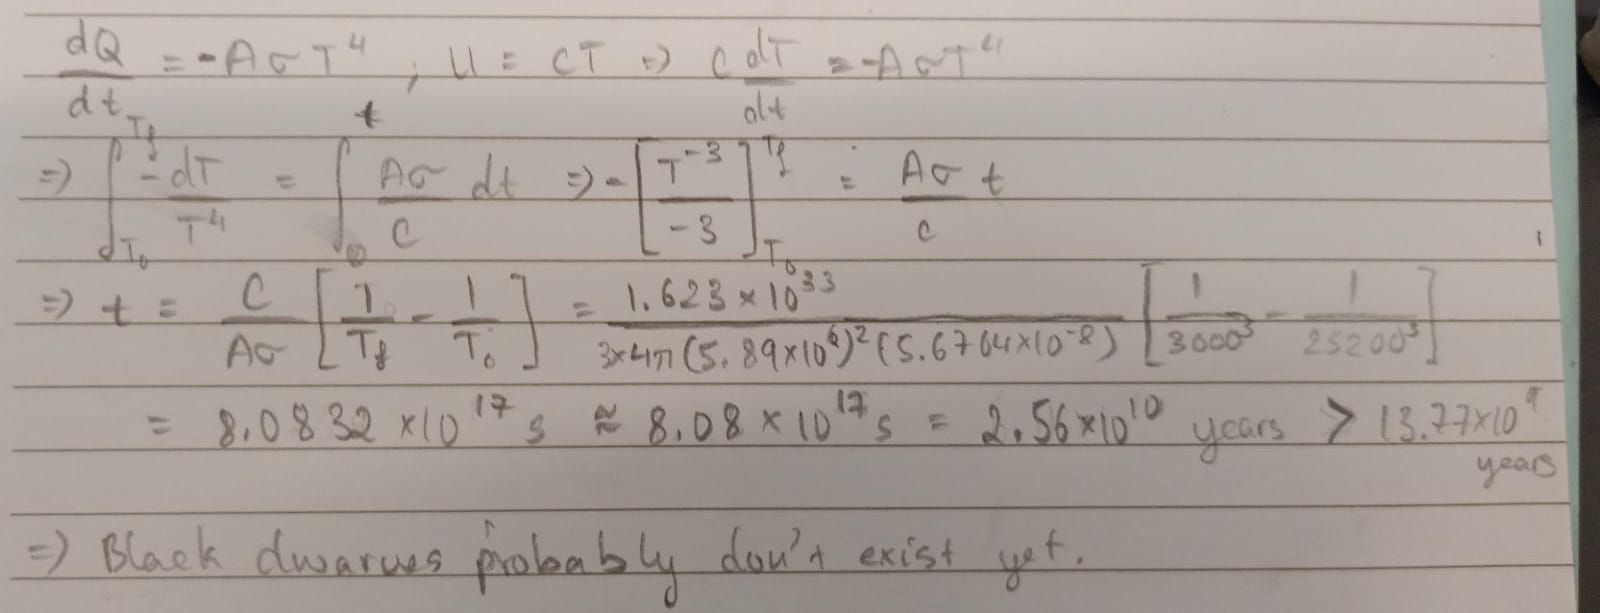 dQ/dt = -AσT⁴ , U = CT ⇒ C dT/dt = -AσT⁴
⇒ ∫_{T₀}^{T_f} -dT/T⁴ = ∫₀^t Aσ/C dt ⇒ -[T⁻³/-3]_{T₀}^{T_f} = Aσ/C t
⇒ t = C/Aσ [1/T_f - 1/T₀] = 1.623 × 10³³ / 3×4π(5.89×10⁶)²(5.6704×10⁻⁸) [1/3000³ - 1/25200³]
= 8.0832 ×10¹⁷ s ≈ 8.08 × 10¹⁷ s = 2.56×10¹⁰ years > 13.77×10⁹ years
⇒ Black dwarves probably don't exist yet.